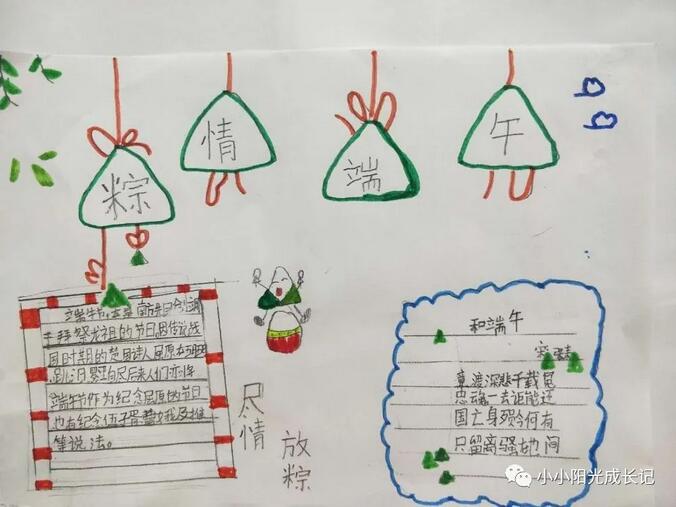 粽
情
端
午
于拜祭龙祖的节日因传说战
国时期的楚国诗人屈原在五月五
跳汨罗江自尽后来人们亦将
端午节作为纪念屈原的节日
也有纪念伍子胥曹娥及
等说法。
尽情
放粽
和端午
竞渡深悲千载冤
忠魂一去讵能还
国亡身殒今何有
只留离骚在 间
小小阳光成长记